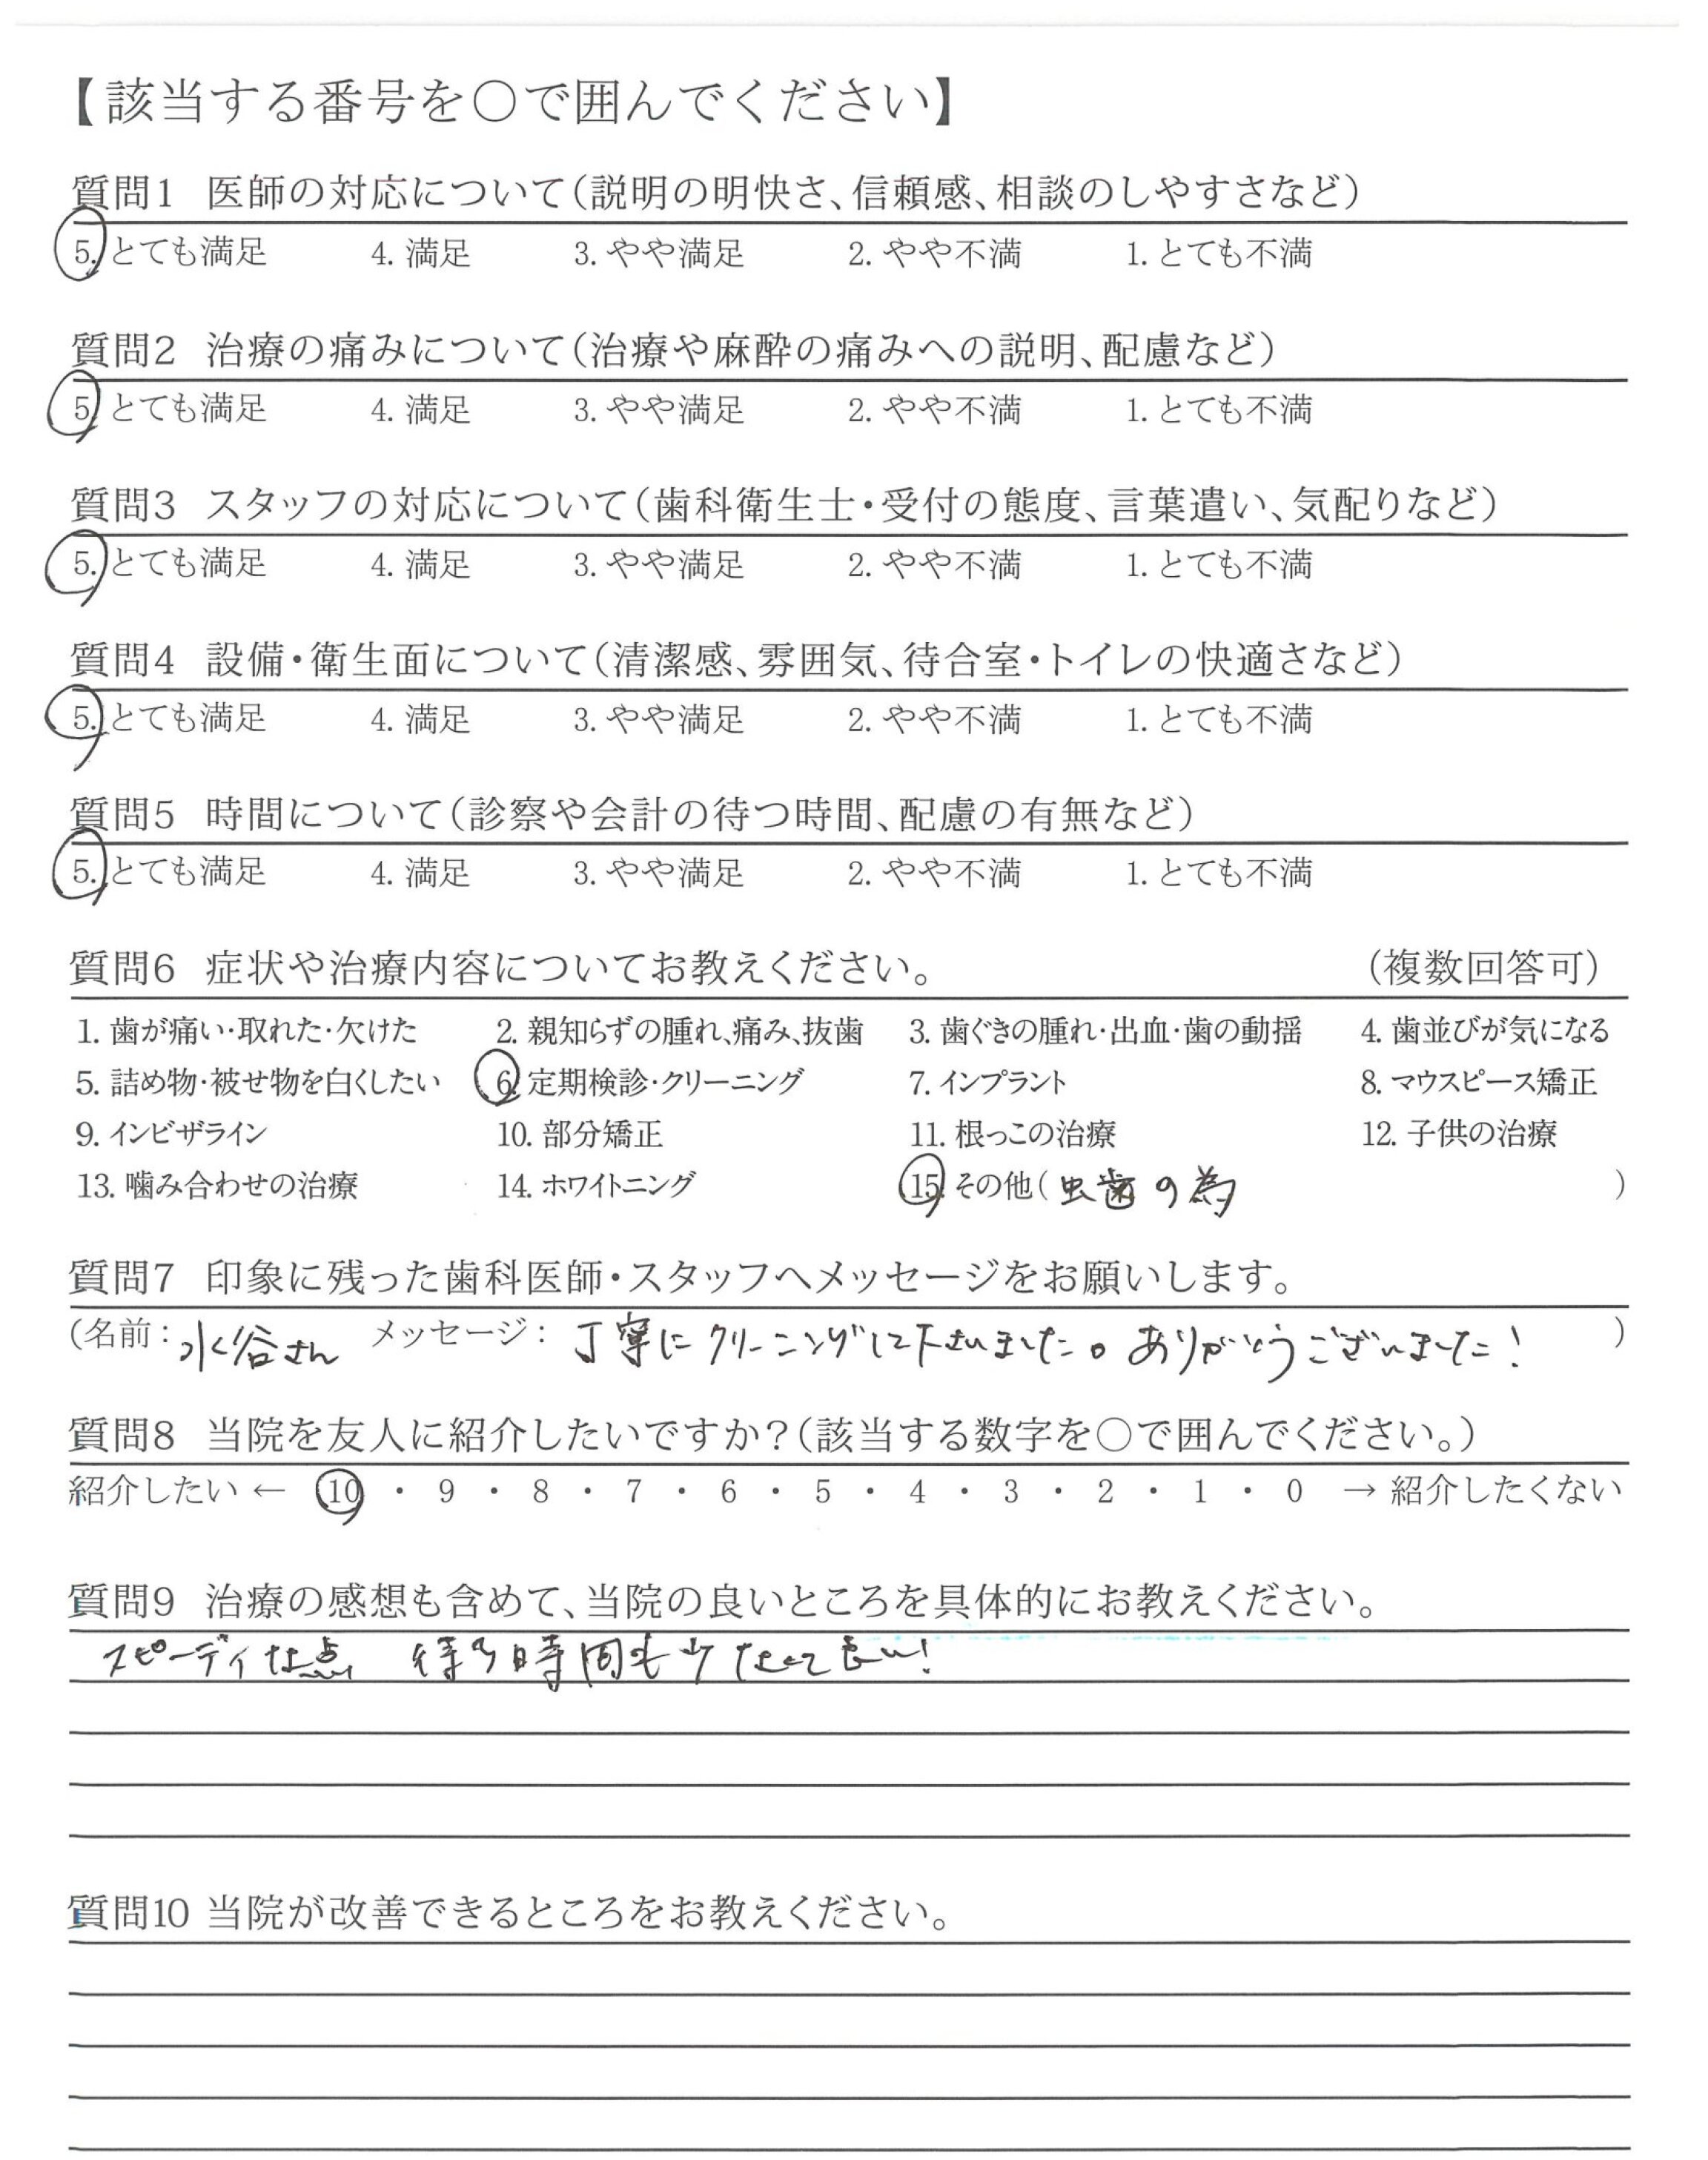 【該当する番号を○で囲んでください】
質問1 医師の対応について(説明の明快さ、信頼感、相談のしやすさなど)
5. とても満足 4. 満足 3. やや満足 2. やや不満 1. とても不満
質問2 治療の痛みについて(治療や麻酔の痛みへの説明、配慮など)
5. とても満足 4. 満足 3. やや満足 2. やや不満 1. とても不満
質問3 スタッフの対応について(歯科衛生士・受付の態度、言葉遣い、気配りなど)
5. とても満足 4. 満足 3. やや満足 2. やや不満 1. とても不満
質問4 設備・衛生面について(清潔感、雰囲気、待合室・トイレの快適さなど)
5. とても満足 4. 満足 3. やや満足 2. やや不満 1. とても不満
質問5 時間について(診察や会計の待つ時間、配慮の有無など)
5. とても満足 4. 満足 3. やや満足 2. やや不満 1. とても不満
質問6 症状や治療内容についてお教えください。 (複数回答可)
1. 歯が痛い・取れた・欠けた 2. 親知らずの腫れ、痛み、抜歯 3. 歯ぐきの腫れ・出血・歯の動揺 4. 歯並びが気になる
5. 詰め物・被せ物を白くしたい 6. 定期検診・クリーニング 7. インプラント 8. マウスピース矯正
9. インビザライン 10. 部分矯正 11. 根っこの治療 12. 子供の治療
13. 噛み合わせの治療 14. ホワイトニング 15. その他( 虫歯の為 )
質問7 印象に残った歯科医師・スタッフへメッセージをお願いします。
(名前: 水谷さん メッセージ: 丁寧にクリーニングして下さいました。ありがとうございました! )
質問8 当院を友人に紹介したいですか?(該当する数字を○で囲んでください。)
紹介したい ← 10 ・ 9 ・ 8 ・ 7 ・ 6 ・ 5 ・ 4 ・ 3 ・ 2 ・ 1 ・ 0 → 紹介したくない
質問9 治療の感想も含めて、当院の良いところを具体的にお教えください。
スピーディな点 待つ時間も少なくて良い!
質問10 当院が改善できるところをお教えください。